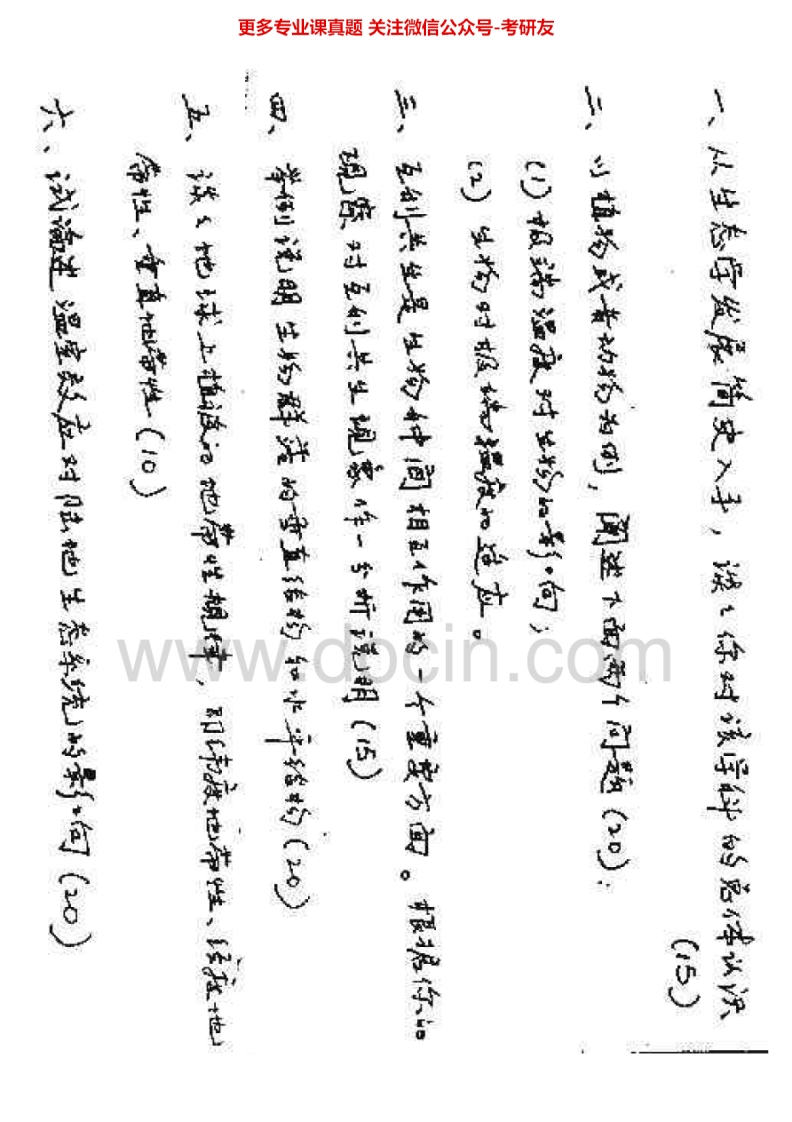 更多专业课真题 关注微信公众号-考研友
一、从生态学发展简史入手，谈谈你对该学科的总体认识
(15)
二、以植物或者动物为例，阐述下面两个问题(20)：
(1)极端温度对生物的影响；
(2)生物对极端温度的适应。
三、互利共生是生物种间相互作用的一个重要方面。根据你的
观察对互利共生现象作一分析说明(15)
四、举例说明生物群落的垂直结构和水平结构(20)
五、谈谈地球上植被的地带性规律，即纬度地带性、经度地
带性、垂直地带性(10)
六、试论述温室效应对陆地生态系统的影响(20)
www.docin.com